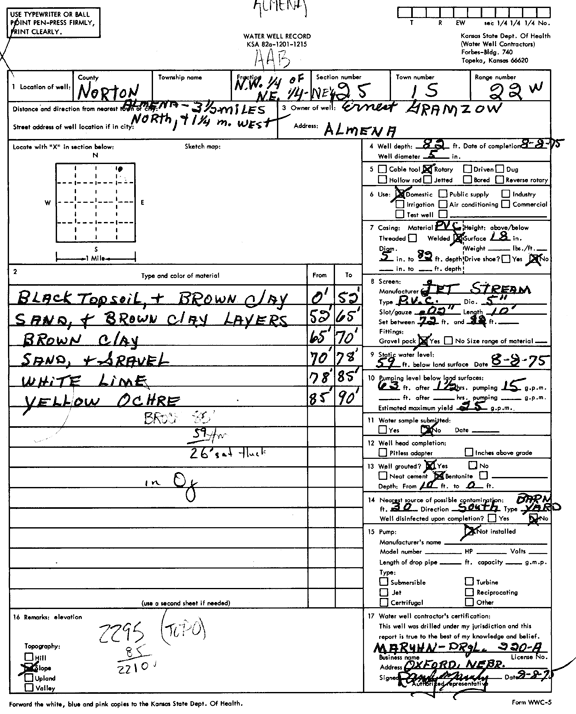 USE TYPEWRITER OR BALL
POINT PEN-PRESS FIRMLY,
PRINT CLEARLY.
ALMENA
WATER WELL RECORD
KSA 82a-1201-1215
AAB
T R EW sec 1/4 1/4 1/4 No.
Kansas State Dept. Of Health
(Water Well Contractors)
Forbes-Bldg. 740
Topeka, Kansas 66620
1 Location of well: County NORTON Township name Fraction N.W. 1/4 OF N.E. 1/4-NE 1/4 Section number 25 Town number 1S Range number 22 W
Distance and direction from nearest town or city: ALMENA - 3 1/2 MILES
NORTH, + 1 1/4 m. WEST
Street address of well location if in city:
3 Owner of well: Ernest GRAMZOW
Address: ALMENA
Locate with "X" in section below: Sketch map:
N
W E
S
1 Mile
4 Well depth: 82 ft. Date of completion 8-8-75
Well diameter 5 in.
5 Cable tool Rotary Driven Dug
Hollow rod Jetted Bored Reverse rotary
6 Use: Domestic Public supply Industry
Irrigation Air conditioning Commercial
Test well
7 Casing: Material PVC Height: above/below
Threaded Welded Surface 18 in.
Diam. Weight lbs./ft.
5 in. to 82 ft. depth Drive shoe? Yes No
in. to ft. depth
8 Screen:
Manufacturer JET STREAM
Type P.V.C. Dia. 5"
Slot/gauze .02" Length 10'
Set between 72 ft. and 82 ft.
Fittings:
Gravel pack Yes No Size range of material
9 Static water level:
59 ft. below land surface Date 8-8-75
10 Pumping level below land surfaces:
63 ft. after 1 1/2 hrs. pumping 15 g.p.m.
ft. after hrs. pumping g.p.m.
Estimated maximum yield 25 g.p.m.
11 Water sample submitted:
Yes No Date
12 Well head completion:
Pitless adapter Inches above grade
13 Well grouted? Yes No
Neat cement Bentonite
Depth: From 10 ft. to 0 ft.
14 Nearest source of possible contamination: BARN
ft. 30 Direction South Type YARD
Well disinfected upon completion? Yes No
15 Pump: Not installed
Manufacturer's name
Model number HP Volts
Length of drop pipe ft. capacity g.m.p.
Type:
Submersible Turbine
Jet Reciprocating
Certrifugal Other
2 Type and color of material From To
BLACK TOPSOIL, + BROWN CLAY 0' 52'
SAND, + BROWN CLAY LAYERS 52' 65'
BROWN CLAY 65' 70'
SAND, + GRAVEL 70' 78'
WHITE LIME 78' 85'
YELLOW OCHRE 85' 90'
59
26' sat thick
in
(use a second sheet if needed)
16 Remarks: elevation
2295 (TOPO)
85
2210
Topography:
Hill
Slope
Upland
Valley
17 Water well contractor's certification:
This well was drilled under my jurisdiction and this
report is true to the best of my knowledge and belief.
MARYHN-DRGL. 220-A
Business name License No.
Address OXFORD, NEBR.
Signed Date 8-8-75
Authorized representative
Forward the white, blue and pink copies to the Kansas State Dept. Of Health.
Form WWC-5